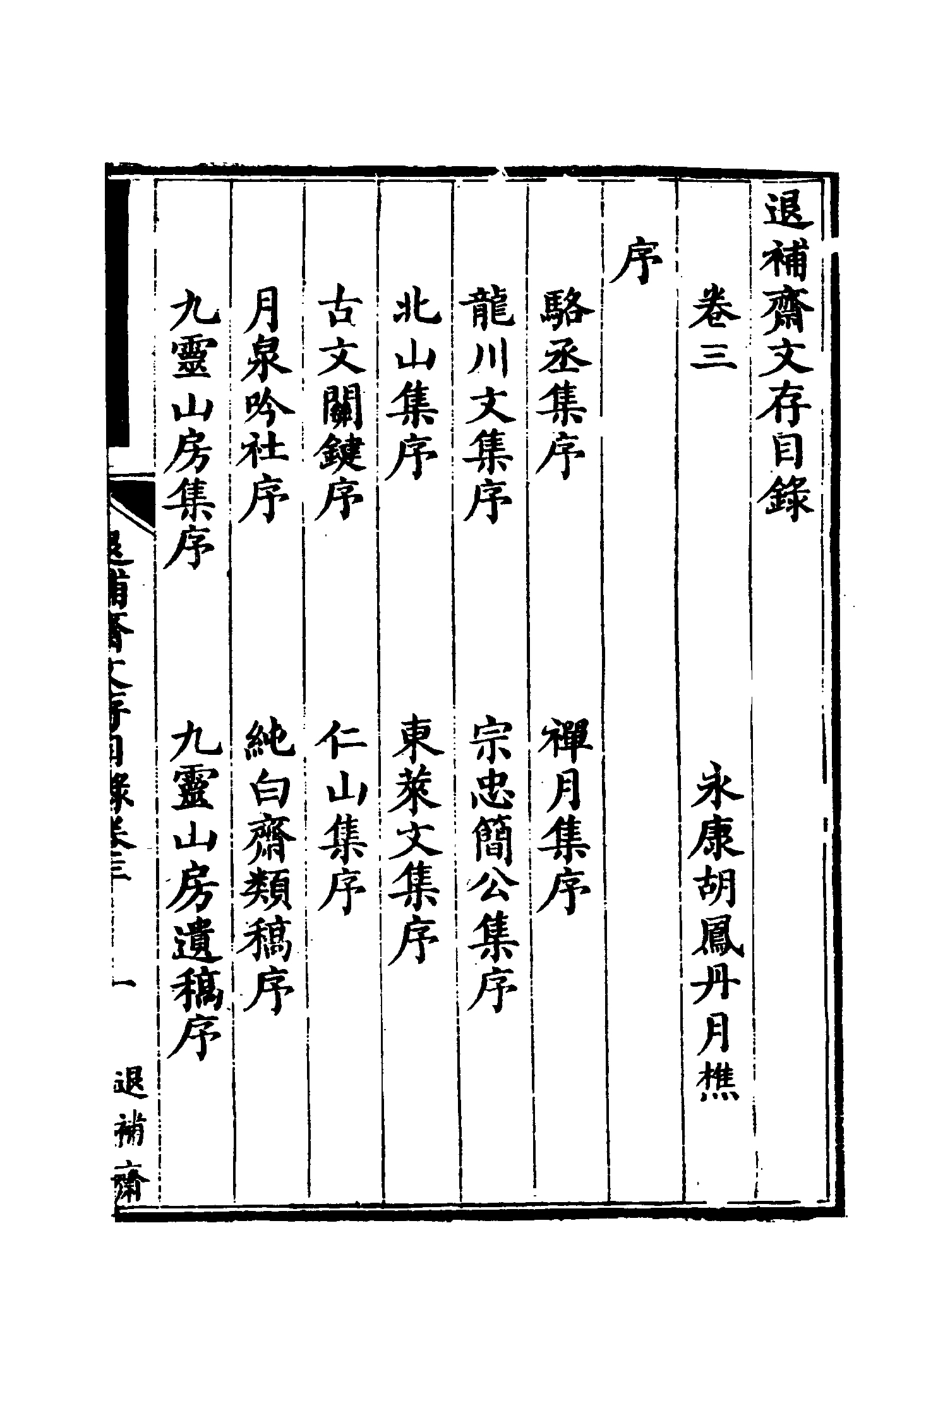 退補齋文存目錄
卷三　永康胡鳳丹月樵
序
駱丞集序　禪月集序
龍川文集序　宗忠簡公集序
北山集序　東萊文集序
古文關鍵序　仁山集序
月泉吟社序　純白齋類稿序
九靈山房集序　九靈山房遺稿序
退補齋文存目錄卷三　一　退補齋